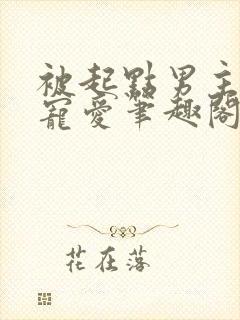 被起點男主
寵愛筆趣閣
花在落